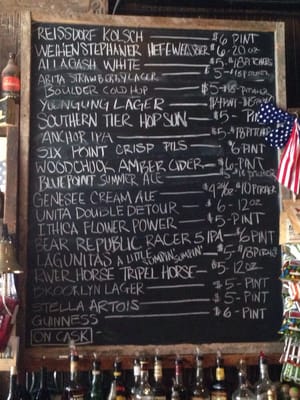 REISSDORF KOLSCH $6 PINT
WEIHENSTEPHANER HEFEWEISSBIER $6-20 OZ
ALLAGASH WHITE $5-
ABITA STRAWBERRY LAGER $5-
BOULDER COLD HOP $5-
YOUNGUNG LAGER $4 PINT
SOUTHERN TIER HOP SUN $5- PINT
ANCHOR IPA $5-
SIX POINT CRISP PILS $6 PINT
WOODCHUCK AMBER CIDER $6- PINT
BLUE POINT SUMMER ALE
GENESEE CREAM ALE
UNITA DOUBLE DETOUR $6-12OZ
ITHICA FLOWER POWER $5-PINT
BEAR REPUBLIC RACER 5 IPA $6 PINT
LAGUNITAS A LITTLE SUMPIN SUMPIN $5-
RIVER HORSE TRIPEL HORSE $5-12OZ
BROOKLYN LAGER $5-PINT
STELLA ARTOIS $5-PINT
GUINNESS $6-PINT
ON CASK